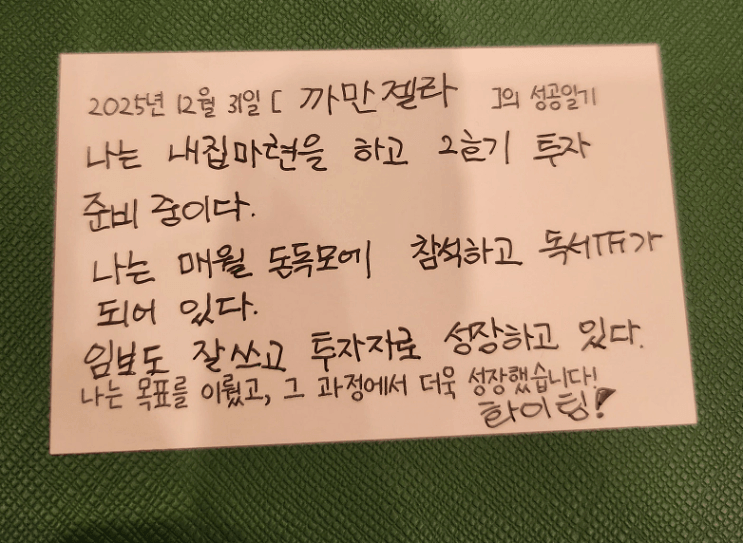 2025년 12월 31일 [ 까만젤라 ]의 성공일기
나는 내집마련을 하고 2호기 투자
준비 중이다.
나는 매월 돈독모에 참석하고 독서TF가
되어 있다.
임보도 잘쓰고 투자자로 성장하고 있다.
나는 목표를 이뤘고, 그 과정에서 더욱 성장했습니다!
화이팅!